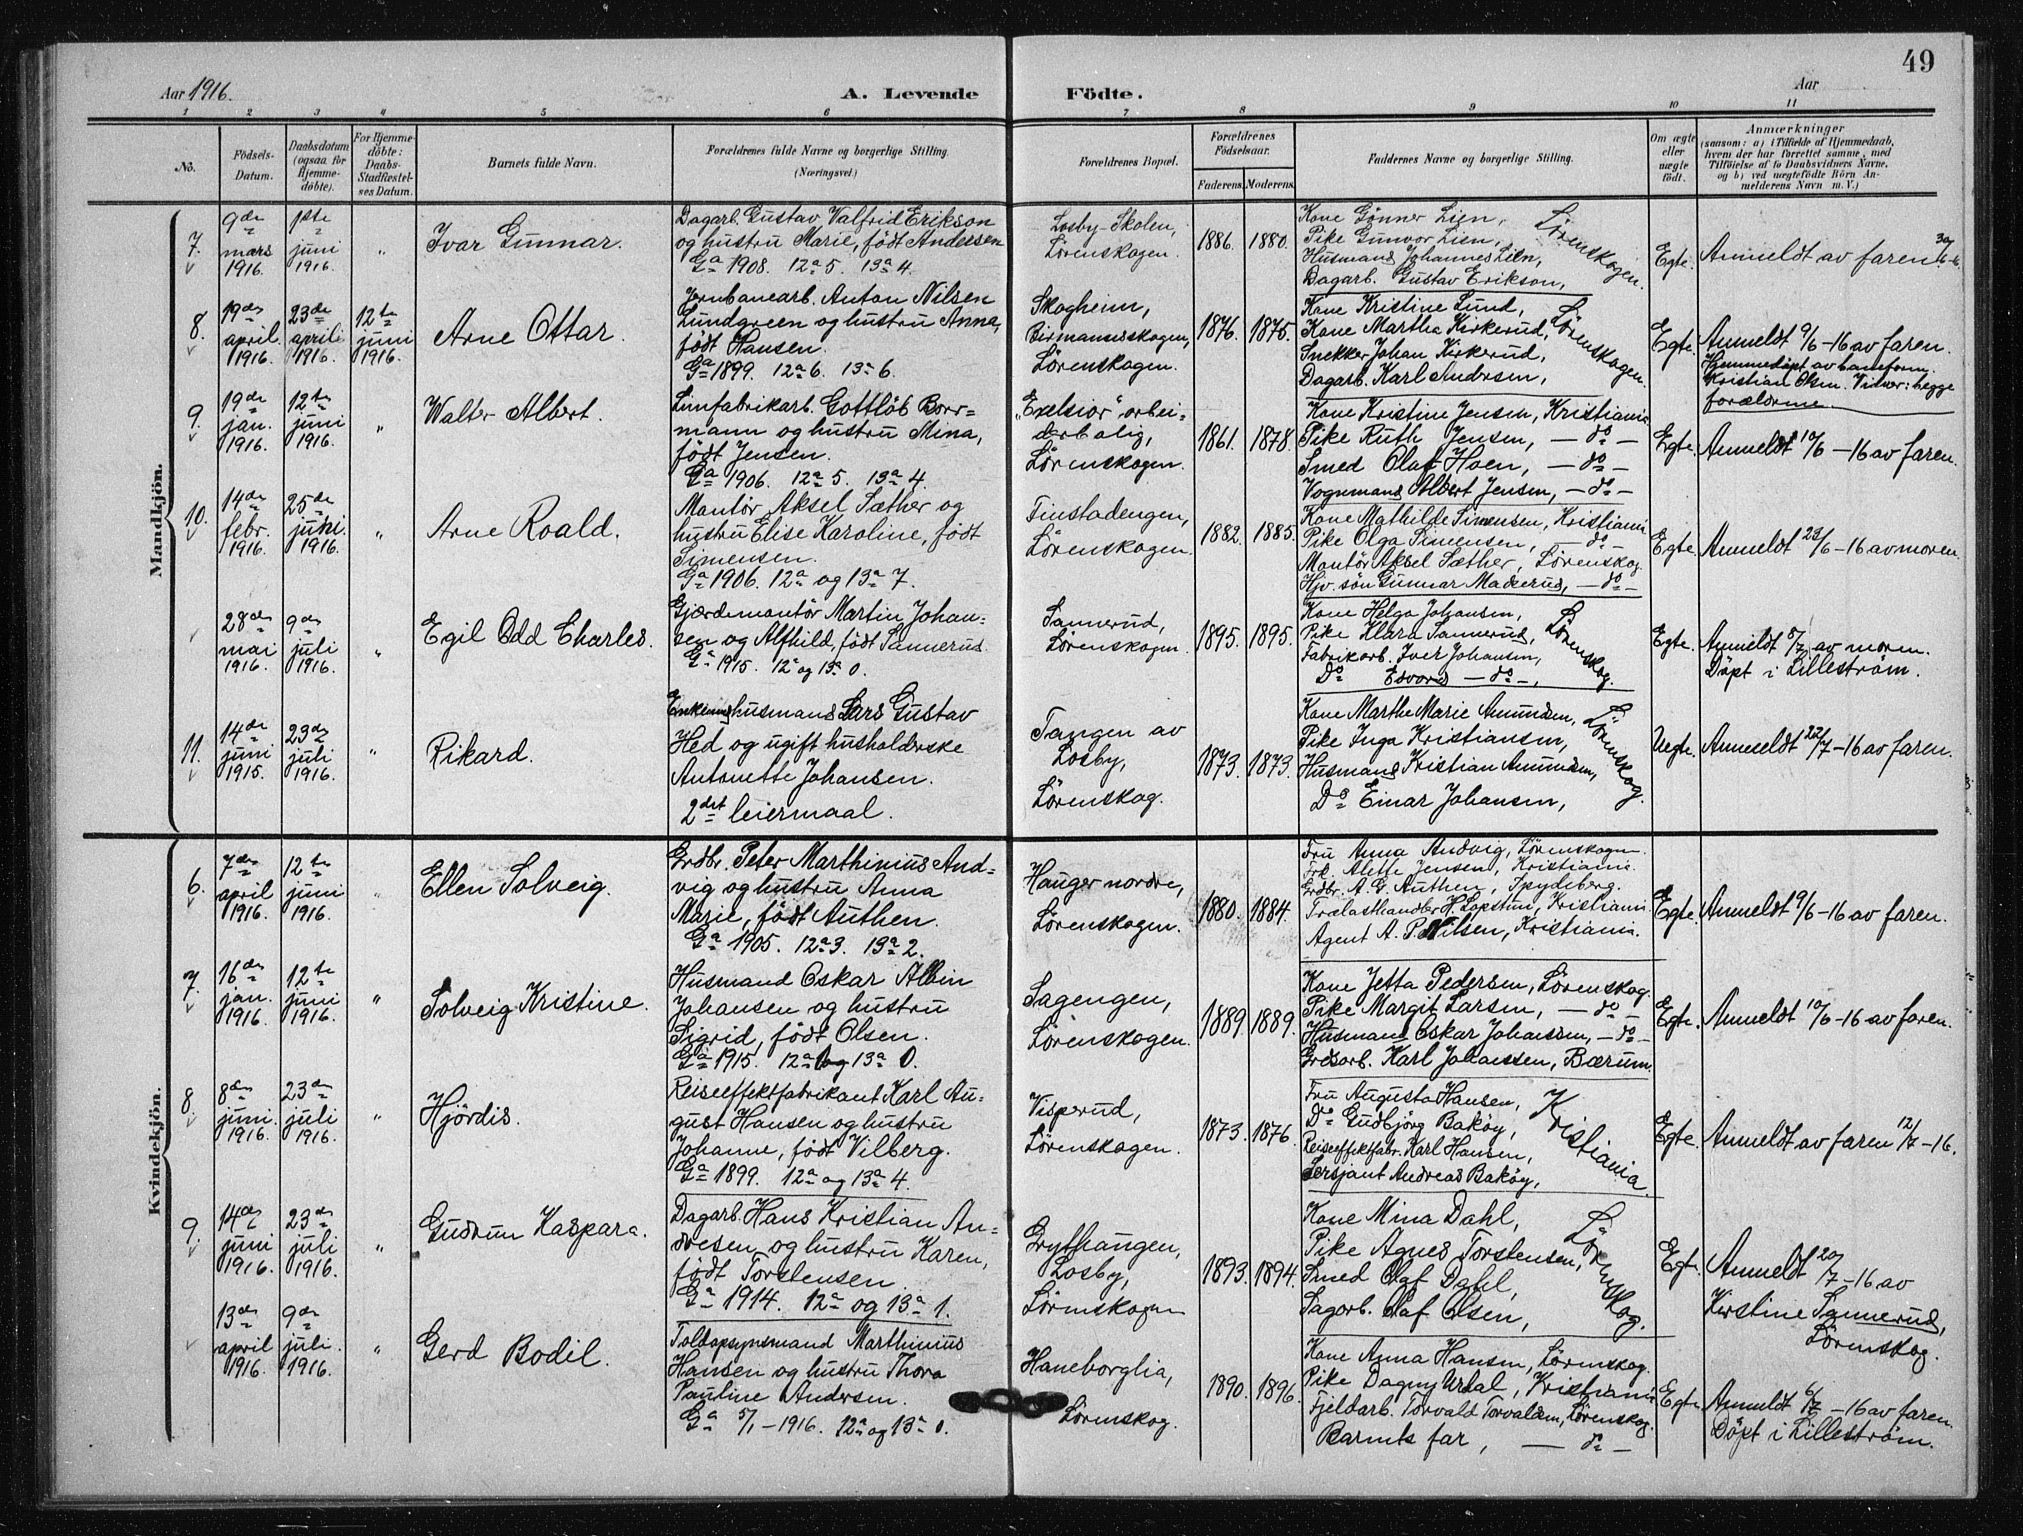 49
Aar 1916. A. Levende Födte. Aar
1 2 3 4 5 6 7 8 9 10 11
No.
Födsels-Datum.
Daabsdatum (ogsaa for Hjemme-döbte).
For Hjemme-döbte: Daabs-Stadfæstel-ses Datum.
Barnets fulde Navn.
Forældrenes fulde Navne og borgerlige Stilling. (Næringsvei.)
Forældrenes Bopæl.
Forældrenes Födselsaar.
Faderens. Moderens.
Faddernes Navne og borgerlige Stilling.
Om ægte eller uægte födt.
Anmærkninger
(saasom: a) i Tilfælde af Hjemmedaab, hvem der har forrettet samme, med Tilföielse af to Daabsvidners Navne, og b) ved uægtefödte Börn An-melderens Navn m. V.)
Mandkjön.
7.
9de mars 1916.
1ste juni 1916.
"
Ivar Gunnar.
Dagarb. Gustav Valfrid Erikson
og hustru Marie, født Andersen
Ga 1908. 12a 5. 13a 4.
Losby-Skolen,
Lörenskogen.
1886. 1880.
Kone Gönner Lien,
Pike Gunvor Lien,
Husmand Johannes Lien,
Dagarb. Gustav Erikson,
Lörenskogen.
Egte.
Anmeldt av faren 30/6-16.
8.
19de april 1916.
23de april 1916.
12te juni 1916.
Arne Ottar.
Jernbanearb. Anton Nilsen
Lundgreen og hustru Anna,
født Hansen.
Ga 1899. 12a 6. 13a 6.
Skogheim,
Birmanseskogen,
Lörenskogen.
1876. 1875.
Kone Kristine Lund,
Kone Martha Kirkerud,
Snekker Johan Kirkerud,
Dagarb. Karl Andersen,
Lörenskogen.
Egte.
Anmeldt 9/6-16 av faren.
Hjemmedöpt av baneform.
Kristian Olsen. Vidner: begge
forældrene.
9.
19de jan. 1916.
12te juni 1916.
"
Walter Albert.
Limfabrikarb. Gottlöb Borr=
mann og hustru Mina,
født Jensen.
Ga 1906. 12a 5. 13a 4.
"Exelsior" arbei-
derbolig,
Lörenskogen.
1861. 1878.
Kone Kristine Jensen, Kristiania
Pike Ruth Jensen, — do —
Smed Olaf Hoen, — do —
Vognmand Albert Jensen, — do —
Egte.
Anmeldt 10/6-16 av faren.
10.
14de febr. 1916.
25de juni 1916.
"
Arne Roald.
Montör Aksel Sæther og
hustru Elise Karoline, født
Simensen.
Ga 1906. 12a og 13a 7.
Finstadengen,
Lörenskogen
1882. 1885.
Kone Mathilde Simensen, Kristiania
Pike Olga Simensen, — do —
Montör Aksel Sæther, Lörenskog.
Hjv. sön Gunnar Maderud, — do —
Egte.
Anmeldt 23/6-16 av moren.
28de mai 1916.
9de juli 1916.
"
Egil Odd Charles.
Gjærdemontör Martin Johan=
sen og Alfhild, født Sannerud
Ga 1915. 12a og 13a 0.
Sannerud,
Lörenskogen.
1895. 1895.
Kone Helga Johansen,
Pike Klara Sannerud,
Fabrikarb. Iver Johansen,
Do Edvard — do —,
Lörenskog.
Egte.
Anmeldt 8/7 av moren.
Döpt i Lilleström.
11.
14de juni 1915.
23de juli 1916.
"
Rikard.
Enkemand husmand Lars Gustav
Hed og ugift husholderske
Antonette Johansen.
2det leiermaal.
Tangen av
Losby,
Lörenskog.
1873. 1873.
Kone Marthe Marie Amundsen,
Pike Inga Kristiansen,
Husmand Kristian Amundsen,
Do Einar Johansen,
Lörenskog.
Uegte.
Anmeldt 22/7-16 av faren.
Kvindekjön.
6.
7de april 1916.
12te juni 1916.
"
Ellen Solveig.
Grdbr. Peter Marthinius And=
vig og hustru Anna
Marie, født Authen.
Ga 1905. 12a 3. 13a 2.
Hauger nordre,
Lörenskogen.
1880. 1884.
Fru Anna Andvig, Lörenskogen.
Frk. Alette Jensen, Kristiania.
Grdbr. A. G. Authen, Spydeberg.
Trælasthandler H. Lopstun, Kristiania
Agent A. P. Nilsen, Kristiania.
Egte.
Anmeldt 9/6-16 av faren.
7.
16de jan. 1916.
12te juni 1916.
"
Solveig Kristine.
Husmand Oskar Albin
Johansen og hustru
Sigrid, født Olsen.
Ga 1915. 12a og 13a 0.
Sagengen,
Lörenskogen.
1889. 1889.
Kone Jetta Pedersen, Lörenskog.
Pike Margit Larsen, — do —
Husmand Oskar Johanssen, — do —
Grdsarb. Karl Johanssen, Bærum.
Egte.
Anmeldt 10/6-16 av faren.
8.
8de juni 1916.
23de juli 1916.
"
Hjördis.
Reiseeffektfabrikant Karl Au=
gust Hansen og hustru
Johanne, født Vilberg.
Ga 1899. 12a og 13a 4.
Visperud,
Lörenskogen.
1873. 1876.
Fru Augusta Hansen,
Do Gudbjörg Baköy,
Reiseeffektfabr. Karl Hansen,
Sersjant Andreas Baköy,
Kristiania.
Egte.
Anmeldt av faren 12/7-16.
9.
14de juni 1916.
23de juli 1916.
"
Gudrun Kaspara.
Dagarb. Hans Kristian An=
dresen og hustru Karen,
født Torstensen
Ga 1914. 12a og 13a 1.
Grythaugen,
Losby,
Lörenskogen
1893. 1894.
Kone Mina Dahl,
Pike Agnes Torstensen,
Smed Olaf Dahl,
Sagarb. Olaf Olsen,
Lörenskog.
Egte.
Anmeldt 20/7-16 av
Kirstine Sannerud,
Lörenskog.
13de april 1916.
9de juli 1916.
"
Gerd Bodil.
Toldopsynsmand Marthinius
Hansen og hustru Thora
Pauline Andersen.
Ga 5/1-1916. 12a og 13a 0.
Haneborglia,
Lörenskog.
1890. 1896.
Kone Anna Hansen, Lörenskog.
Pike Dagny Urdal, Kristiania
Fjeldarb. Torvald Torvaldsen, Lörenskog.
Barnets far, — do —
Egte.
Anmeldt 6/7-16 av faren.
Döpt i Lilleström.